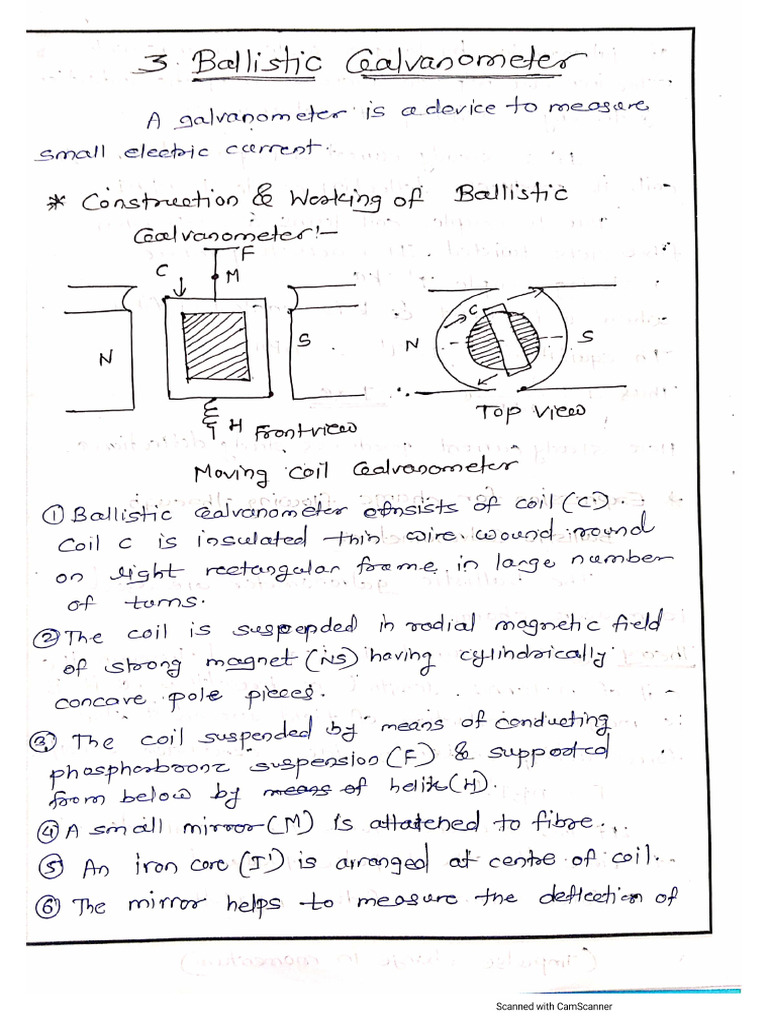 3 Ballistic Gealvanometer
A galvanometer is a device to measure
small electric current.
* Construction & Working of Ballistic
Gealvanometer:-
F
C
M
N
S
H
Front view
N
C
S
Top view
Moving coil Gealvanometer
① Ballistic Gealvanometer consists of coil (C).
coil C is insulated thin wire wound round
on light rectangular frame in large number
of turns.
② The coil is suspended in radial magnetic field
of strong magnet (NS) having cylindrically
concave pole pieces.
③ The coil suspended by means of conducting
phasphorbronz suspension (F) & supported
from below by means of helix (H).
④ A small mirror (M) is attatched to fibre.
⑤ An iron core (I') is arranged at centre of coil.
⑥ The mirror helps to measure the deflection of
Scanned with CamScanner